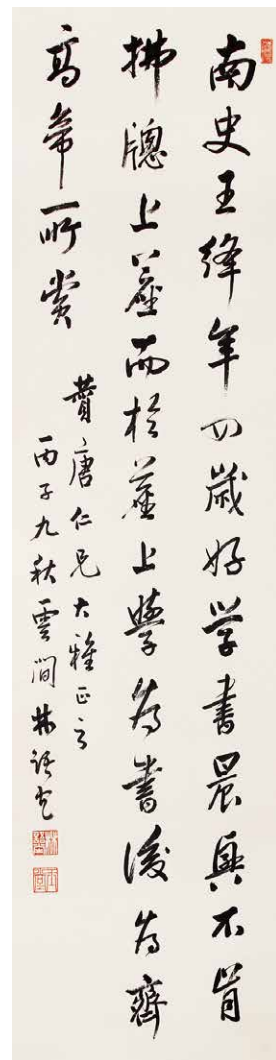 南史王鋒年四歲好学書晨興不肯
拂牕上塵而於塵上學為書後為齊
高帝所賞
蕢唐仁兄大雅正之
丙子九秋雲間林語堂